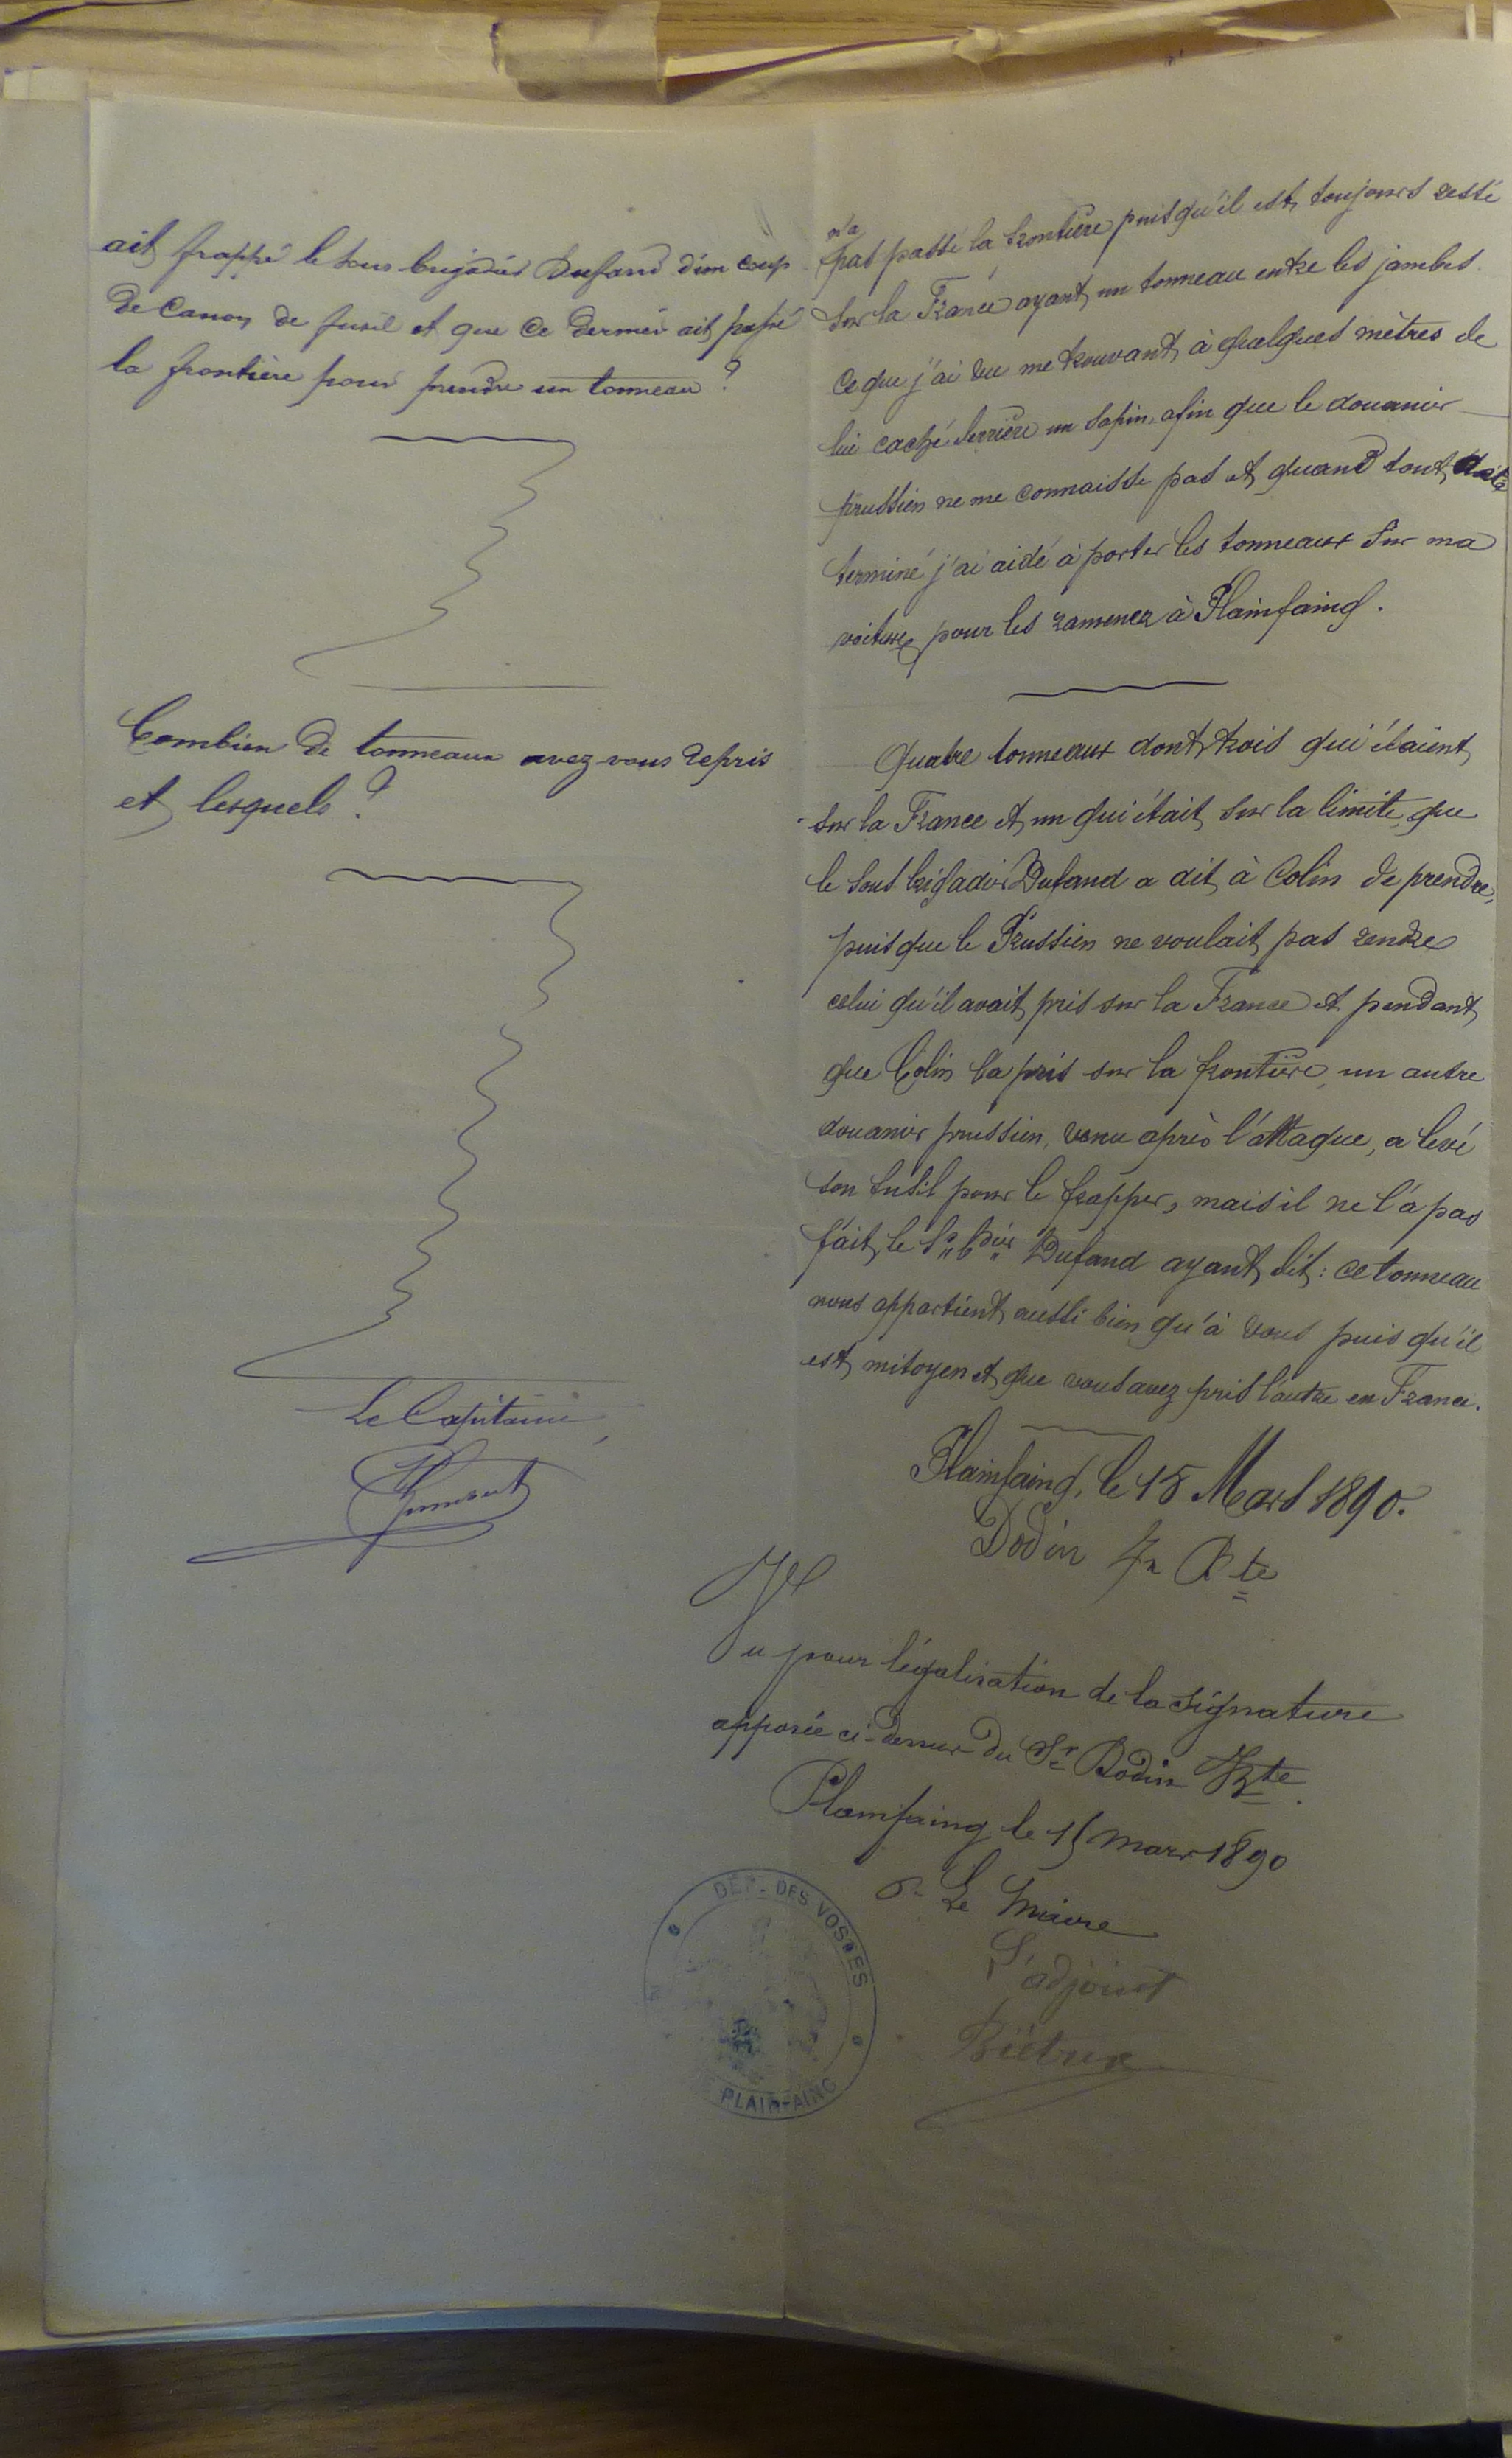 ait frappé le sous brigadier Dufand d'un coup
de canon de fusil et que ce dernier ait passé
la frontière pour prendre un tonneau ?
n'a
pas passé la frontière puisqu'il est toujours resté
sur la France ayant un tonneau entre les jambes.
Ce que j'ai vu me trouvant à quelques mètres de
lui caché derrière un sapin, afin que le douanier
prussien ne me connaisse pas et quand tout a été
terminé j'ai aidé à porter les tonneaux sur ma
voiture pour les ramener à Plainfaing.
Combien de tonneaux avez-vous repris
et lesquels ?
Quatre tonneaux dont trois qui étaient
sur la France et un qui était sur la limite, que
le sous brigadier Dufand a dit à Colin de prendre,
puisque le Prussien ne voulait pas rendre
celui qu'il avait pris sur la France et pendant
que Colin l'a pris sur la frontière, un autre
douanier prussien, venu après l'attaque, a levé
son fusil pour le frapper, mais il ne l'a pas
fait, le Ss bdier Dufand ayant dit : ce tonneau
nous appartient aussi bien qu'à vous puisqu'il
est mitoyen et que vous avez pris l'autre en France.
Le Capitaine,
Plainfaing, le 15 Mars 1890.
Dodin Jn Bte
Vu pour légalisation de la signature
apposée ci-dessus du Sr Dodin JBte.
Plainfaing le 15 mars 1890
Pr Le Maire
L'adjoint
DÉP. DES VOSGES
PLAINFAING